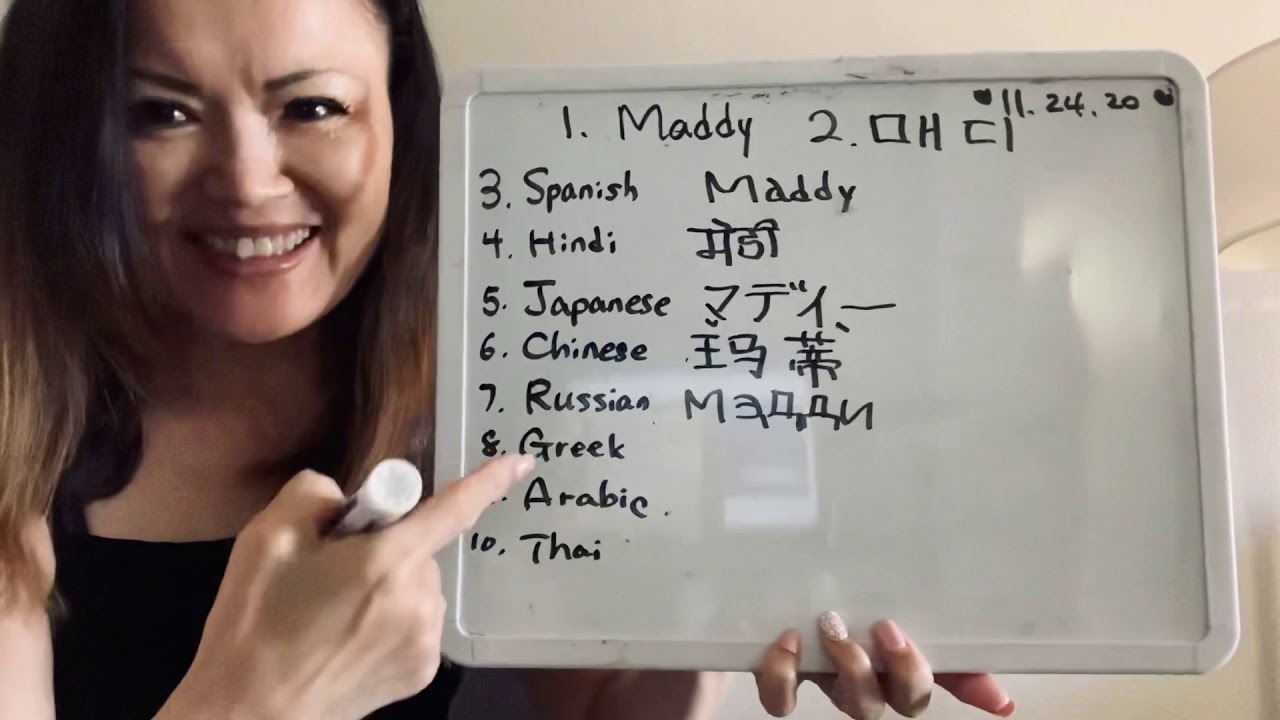 11.24.20
1. Maddy 2. 매디
3. Spanish Maddy
4. Hindi मेडी
5. Japanese マディー
6. Chinese 玛蒂
7. Russian Мэдди
8. Greek
Arabic.
10. Thai